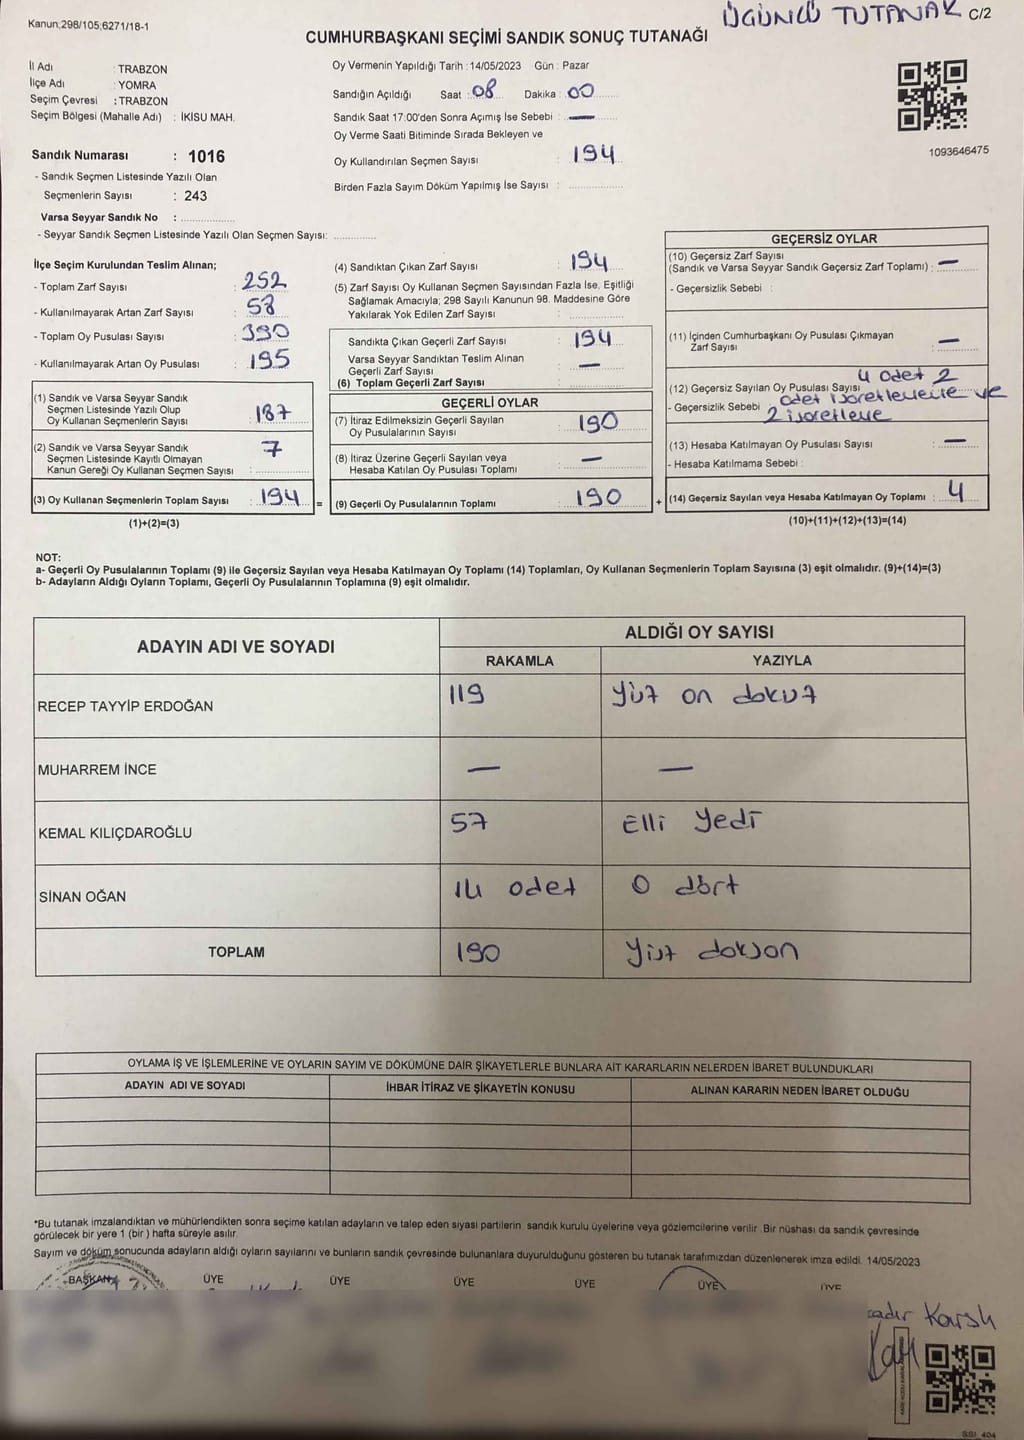 Kanun;298/105;6271/18-1
ÜÇÜNCÜ TUTANAK C/2
CUMHURBAŞKANI SEÇİMİ SANDIK SONUÇ TUTANAĞI
İl Adı : TRABZON
İlçe Adı : YOMRA
Seçim Çevresi : TRABZON
Seçim Bölgesi (Mahalle Adı) : İKİSU MAH.
Sandık Numarası : 1016
- Sandık Seçmen Listesinde Yazılı Olan
Seçmenlerin Sayısı : 243
Varsa Seyyar Sandık No :
- Seyyar Sandık Seçmen Listesinde Yazılı Olan Seçmen Sayısı:
Oy Vermenin Yapıldığı Tarih :14/05/2023 Gün : Pazar
Sandığın Açıldığı Saat : 08 Dakika : 00
Sandık Saat 17:00'den Sonra Açımış İse Sebebi : —
Oy Verme Saati Bitiminde Sırada Bekleyen ve
Oy Kullandırılan Seçmen Sayısı : 194
Birden Fazla Sayım Döküm Yapılmış İse Sayısı :
1093646475
İlçe Seçim Kurulundan Teslim Alınan;
- Toplam Zarf Sayısı : 252
- Kullanılmayarak Artan Zarf Sayısı : 58
- Toplam Oy Pusulası Sayısı : 390
- Kullanılmayarak Artan Oy Pusulası : 195
(1) Sandık ve Varsa Seyyar Sandık
Seçmen Listesinde Yazılı Olup
Oy Kullanan Seçmenlerin Sayısı : 187
(2) Sandık ve Varsa Seyyar Sandık
Seçmen Listesinde Kayıtlı Olmayan
Kanun Gereği Oy Kullanan Seçmen Sayısı : 7
(3) Oy Kullanan Seçmenlerin Toplam Sayısı : 194 =
(1)+(2)=(3)
(4) Sandıktan Çıkan Zarf Sayısı : 194
(5) Zarf Sayısı Oy Kullanan Seçmen Sayısından Fazla İse, Eşitliği
Sağlamak Amacıyla; 298 Sayılı Kanunun 98. Maddesine Göre
Yakılarak Yok Edilen Zarf Sayısı :
Sandıkta Çıkan Geçerli Zarf Sayısı : 194
Varsa Seyyar Sandıktan Teslim Alınan
Geçerli Zarf Sayısı : —
(6) Toplam Geçerli Zarf Sayısı :
GEÇERLİ OYLAR
(7) İtiraz Edilmeksizin Geçerli Sayılan
Oy Pusulalarının Sayısı : 190
(8) İtiraz Üzerine Geçerli Sayılan veya
Hesaba Katılan Oy Pusulası Toplamı : —
(9) Geçerli Oy Pusulalarının Toplamı : 190 +
GEÇERSİZ OYLAR
(10) Geçersiz Zarf Sayısı
(Sandık ve Varsa Seyyar Sandık Geçersiz Zarf Toplamı) : —
- Geçersizlik Sebebi :
(11) İçinden Cumhurbaşkanı Oy Pusulası Çıkmayan
Zarf Sayısı : —
(12) Geçersiz Sayılan Oy Pusulası Sayısı 4 adet 2
- Geçersizlik Sebebi adet ve
2
(13) Hesaba Katılmayan Oy Pusulası Sayısı : —
- Hesaba Katılmama Sebebi :
(14) Geçersiz Sayılan veya Hesaba Katılmayan Oy Toplamı : 4
(10)+(11)+(12)+(13)=(14)
NOT:
a- Geçerli Oy Pusulalarının Toplamı (9) ile Geçersiz Sayılan veya Hesaba Katılmayan Oy Toplamı (14) Toplamları, Oy Kullanan Seçmenlerin Toplam Sayısına (3) eşit olmalıdır. (9)+(14)=(3)
b- Adayların Aldığı Oyların Toplamı, Geçerli Oy Pusulalarının Toplamına (9) eşit olmalıdır.
ADAYIN ADI VE SOYADI ALDIĞI OY SAYISI
RAKAMLA YAZIYLA
RECEP TAYYİP ERDOĞAN 119 Yüz on dokuz
MUHARREM İNCE — —
KEMAL KILIÇDAROĞLU 57 Elli Yedi
SİNAN OĞAN 14 adet O dört
TOPLAM 190 Yüz doksan
OYLAMA İŞ VE İŞLEMLERİNE VE OYLARIN SAYIM VE DÖKÜMÜNE DAİR ŞİKAYETLERLE BUNLARA AİT KARARLARIN NELERDEN İBARET BULUNDUKLARI
ADAYIN ADI VE SOYADI İHBAR İTİRAZ VE ŞİKAYETİN KONUSU ALINAN KARARIN NEDEN İBARET OLDUĞU
*Bu tutanak imzalandıktan ve mühürlendikten sonra seçime katılan adayların ve talep eden siyasi partilerin sandık kurulu üyelerine veya gözlemcilerine verilir. Bir nüshası da sandık çevresinde
görülecek bir yere 1 (bir) hafta süreyle asılır.
Sayım ve döküm sonucunda adayların aldığı oyların sayılarını ve bunların sandık çevresinde bulunanlara duyurulduğunu gösteren bu tutanak tarafımızdan düzenlenerek imza edildi. 14/05/2023
BAŞKAN ÜYE ÜYE ÜYE ÜYE ÜYE ÜYE
Karslı
SSI_404